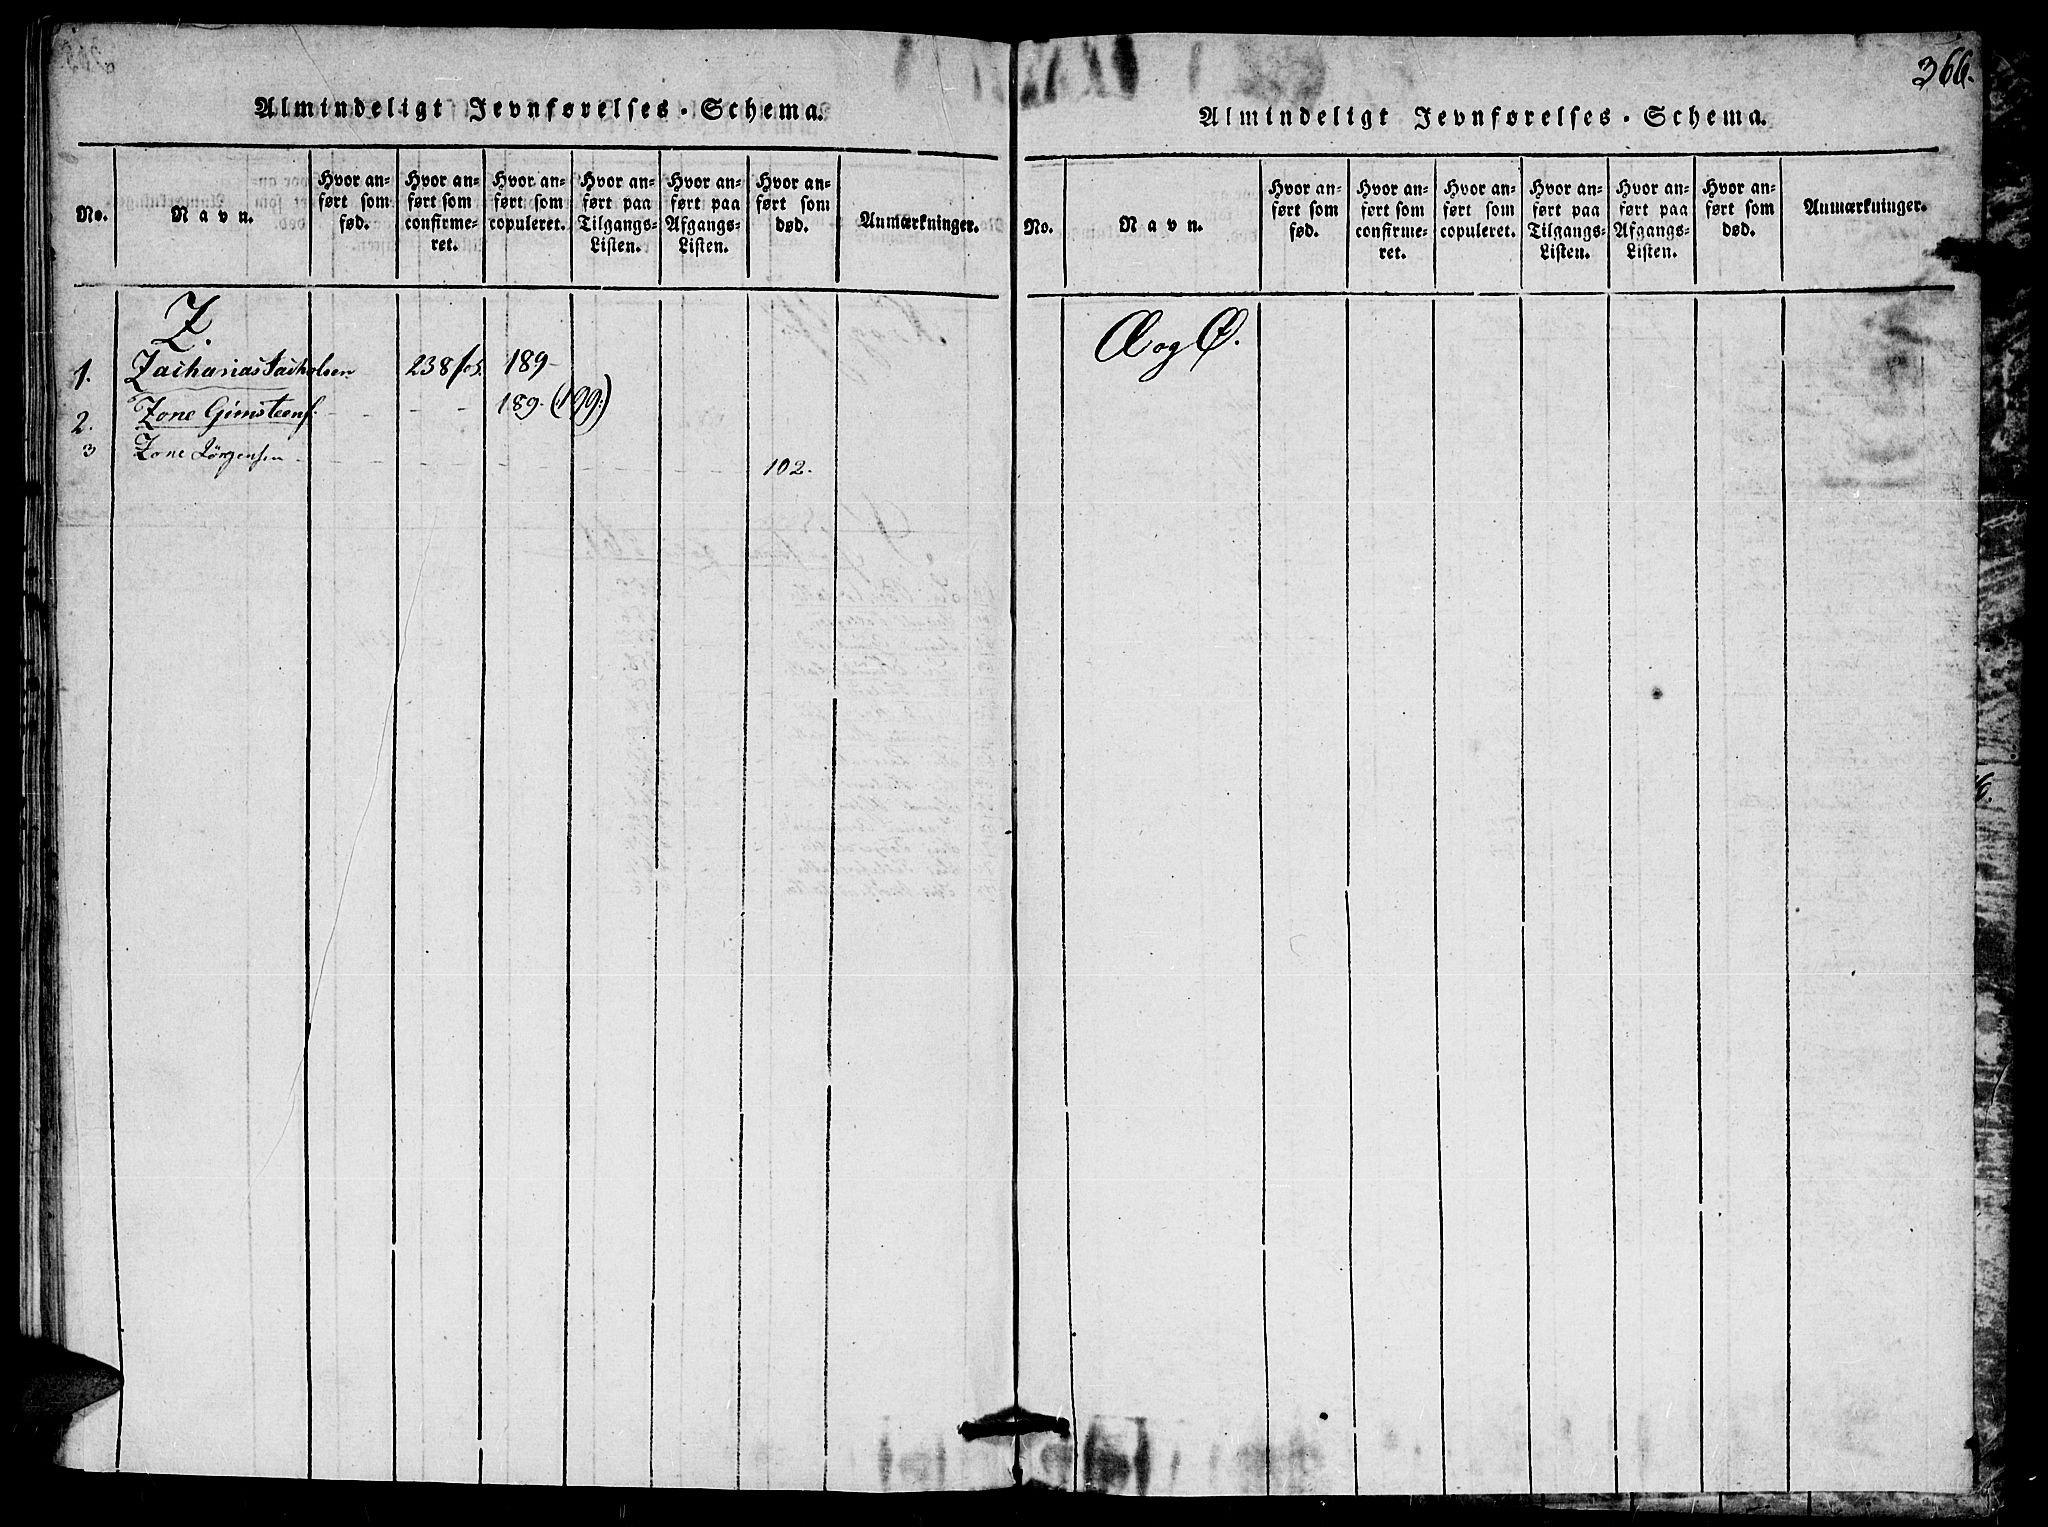 Almindeligt Jevnførelses-Schema.
No.
Navn.
Hvor an-
ført som
fød.
Hvor an-
ført som
confirme-
ret.
Hvor an-
ført som
copuleret.
Hvor an-
ført paa
Tilgangs-
Listen.
Hvor an-
ført paa
Afgangs-
Listen.
Hvor an-
ført som
død.
Anmærkninger.
Z.
1. Zacharias 238 189-
2. Zone 189. (199:)
3 Zone Jørgensen 102.
366.
Almindeligt Jevnførelses-Schema.
No.
Navn.
Hvor an-
ført som
fød.
Hvor an-
ført som
confirme-
ret.
Hvor an-
ført som
copuleret.
Hvor an-
ført paa
Tilgangs-
Listen.
Hvor an-
ført paa
Afgangs-
Listen.
Hvor an-
ført som
død.
Anmærkninger.
Æ og Ø.